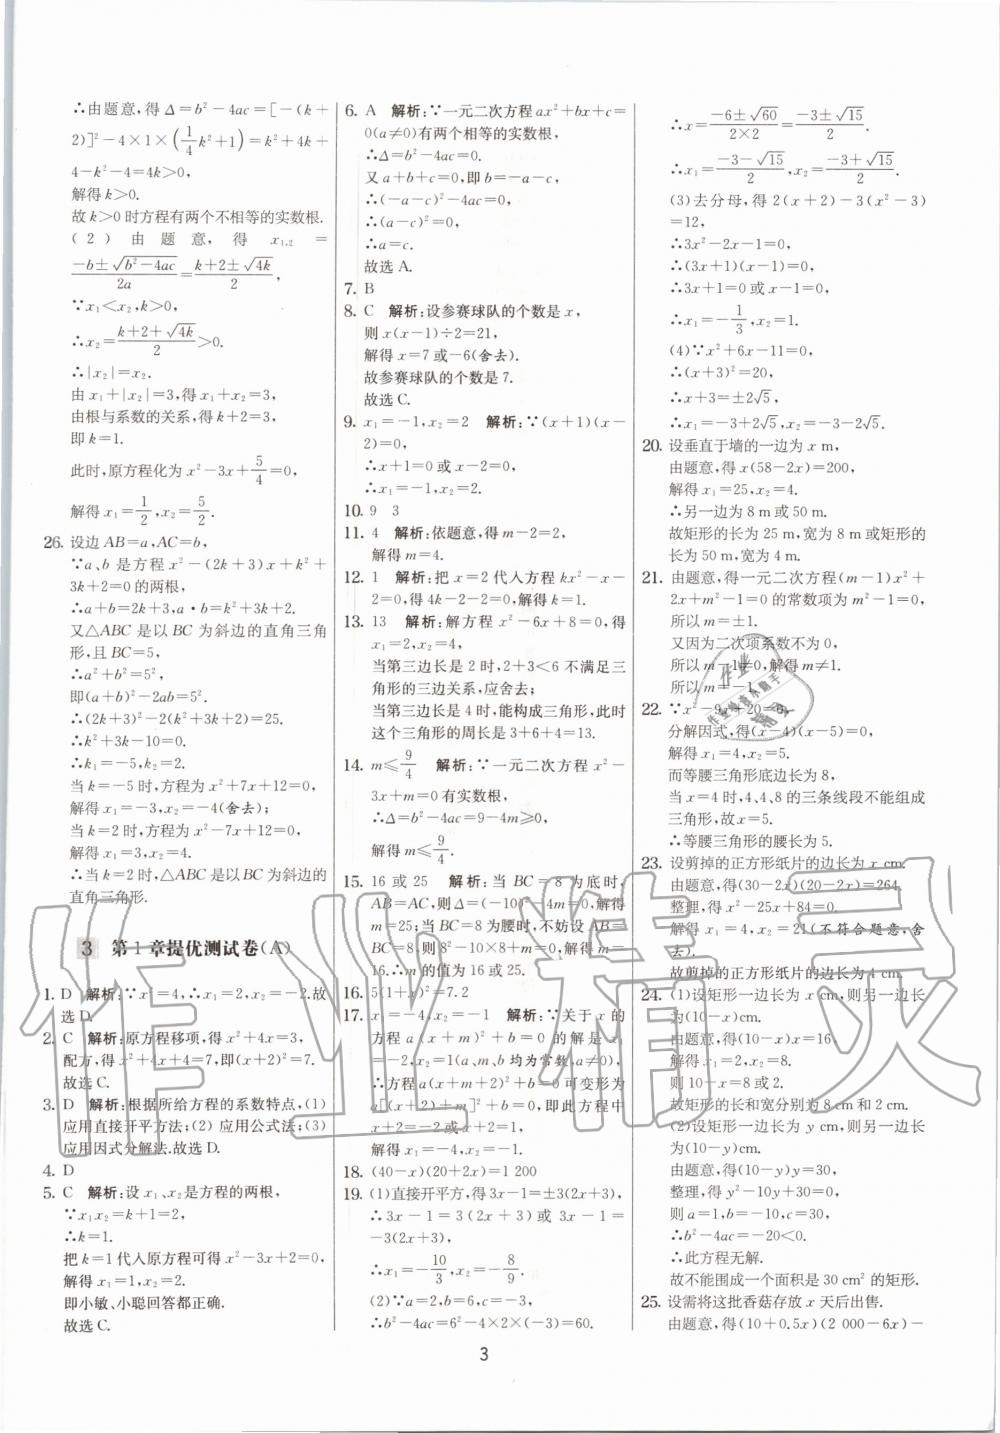 ∴由题意,得Δ=b²-4ac=[-(k+
2)]²-4×1×(1/4k²+1)=k²+4k+
4-k²-4=4k>0,
解得k>0.
故k>0时方程有两个不相等的实数根.
(2)由题意,得x₁,₂=
(-b±√(b²-4ac))/2a=(k+2±√4k)/2,
∵x₁<x₂,k>0,
∴x₂=(k+2+√4k)/2>0.
∴|x₂|=x₂.
由x₁+|x₂|=3,得x₁+x₂=3,
由根与系数的关系,得k+2=3,
即k=1.
此时,原方程化为x²-3x+5/4=0,
解得x₁=1/2,x₂=5/2.
26. 设边AB=a,AC=b,
∵a、b是方程x²-(2k+3)x+k²+
3k+2=0的两根,
∴a+b=2k+3,a·b=k²+3k+2.
又△ABC是以BC为斜边的直角三角
形,且BC=5,
∴a²+b²=5²,
即(a+b)²-2ab=5².
∴(2k+3)²-2(k²+3k+2)=25.
∴k²+3k-10=0.
∴k₁=-5,k₂=2.
当k=-5时,方程为x²+7x+12=0,
解得x₁=-3,x₂=-4(舍去);
当k=2时,方程为x²-7x+12=0,
解得x₁=3,x₂=4.
∴当k=2时,△ABC是以BC为斜边的
直角三角形.
3 第1章提优测试卷(A)
1. D 解析:∵x²=4,∴x₁=2,x₂=-2.故
选D.
2. C 解析:原方程移项,得x²+4x=3,
配方,得x²+4x+4=7,即(x+2)²=7.
故选C.
3. D 解析:根据所给方程的系数特点,(1)
应用直接开平方法;(2)应用公式法;(3)
应用因式分解法.故选D.
4. D
5. C 解析:设x₁、x₂是方程的两根,
∵x₁x₂=k+1=2,
∴k=1.
把k=1代入原方程可得x²-3x+2=0,
解得x₁=1,x₂=2.
即小敏、小聪回答都正确.
故选C.
6. A 解析:∵一元二次方程ax²+bx+c=
0(a≠0)有两个相等的实数根,
∴Δ=b²-4ac=0.
又a+b+c=0,即b=-a-c,
∴(-a-c)²-4ac=0,
∴(a-c)²=0,
∴a=c.
故选A.
7. B
8. C 解析:设参赛球队的个数是x,
则x(x-1)÷2=21,
解得x=7或-6(舍去).
故参赛球队的个数是7.
故选C.
9. x₁=-1,x₂=2 解析:∵(x+1)(x-
2)=0,
∴x+1=0或x-2=0,
∴x₁=-1,x₂=2.
10. 9 3
11. 4 解析:依题意,得m-2=2,
解得m=4.
12. 1 解析:把x=2代入方程kx²-x-
2=0,得4k-2-2=0,解得k=1.
13. 13 解析:解方程x²-6x+8=0,得
x₁=2,x₂=4,
当第三边长是2时,2+3<6不满足三
角形的三边关系,应舍去;
当第三边长是4时,能构成三角形,此时
这个三角形的周长是3+6+4=13.
14. m≤9/4 解析:∵一元二次方程x²-
3x+m=0有实数根,
∴Δ=b²-4ac=9-4m≥0,
解得m≤9/4.
15. 16或25 解析:当BC=8为底时,
AB=AC,则Δ=(-10)²-4m=0,解得
m=25;当BC=8为腰时,不妨设AB=
BC=8,则8²-10×8+m=0,解得m=
16.∴m的值为16或25.
16. 5(1+x)²=7.2
17. x₁=-4,x₂=-1 解析:∵关于x的
方程a(x+m)²+b=0的解是x₁
=-2,x₂=1(a、m、b均为常数,a≠0),
∴方程a(x+m+2)²+b=0可变形为
a[(x+2)+m]²+b=0,即此方程中
x+2=-2或x+2=1,
解得x₁=-4,x₂=-1.
18. (40-x)(20+2x)=1 200
19. (1)直接开平方,得3x-1=±3(2x+3),
∴3x-1=3(2x+3)或3x-1=
-3(2x+3),
∴x₁=-10/3,x₂=-8/9.
(2)∵a=2,b=6,c=-3,
∴b²-4ac=6²-4×2×(-3)=60.
∴x=(-6±√60)/(2×2)=(-3±√15)/2.
∴x₁=(-3-√15)/2,x₂=(-3+√15)/2.
(3)去分母,得2(x+2)-3(x²-3)
=12,
∴3x²-2x-1=0,
∴(3x+1)(x-1)=0,
∴3x+1=0或x-1=0,
∴x₁=-1/3,x₂=1.
(4)∵x²+6x-11=0,
∴(x+3)²=20,
∴x+3=±2√5,
∴x₁=-3+2√5,x₂=-3-2√5.
20. 设垂直于墙的一边为x m,
由题意,得x(58-2x)=200,
解得x₁=25,x₂=4.
∴另一边为8 m或50 m.
故矩形的长为25 m,宽为8 m或矩形的
长为50 m,宽为4 m.
21. 由题意,得一元二次方程(m-1)x²+
2x+m²-1=0的常数项为m²-1=0,
所以m=±1.
又因为二次项系数不为0,
所以m-1≠0,解得m≠1.
所以m=-1.
22. ∵x²-9x+20=0,
分解因式,得(x-4)(x-5)=0,
解得x₁=4,x₂=5.
而等腰三角形底边长为8,
当x=4时,4、4、8的三条线段不能组成
三角形,故x=5.
∴等腰三角形的腰长为5.
23. 设剪掉的正方形纸片的边长为x cm.
由题意,得(30-2x)(20-2x)=264.
整理,得x²-25x+84=0.
解得x₁=4,x₂=21(不符合题意,舍
去).
故剪掉的正方形纸片的边长为4 cm.
24. (1)设矩形一边长为x cm,则另一边长
为(10-x)cm.
由题意,得(10-x)x=16,
解得x₁=2,x₂=8.
则10-x=8或2.
故矩形的长和宽分别为8 cm和2 cm.
(2)设矩形一边长为y cm,则另一边长
为(10-y)cm.
由题意,得(10-y)y=30,
整理,得y²-10y+30=0,
则a=1,b=-10,c=30,
∴b²-4ac=-20<0.
∴此方程无解.
故不能围成一个面积是30 cm²的矩形.
25. 设需将这批香菇存放x天后出售.
由题意,得(10+0.5x)(2 000-6x)-
3
作业精灵